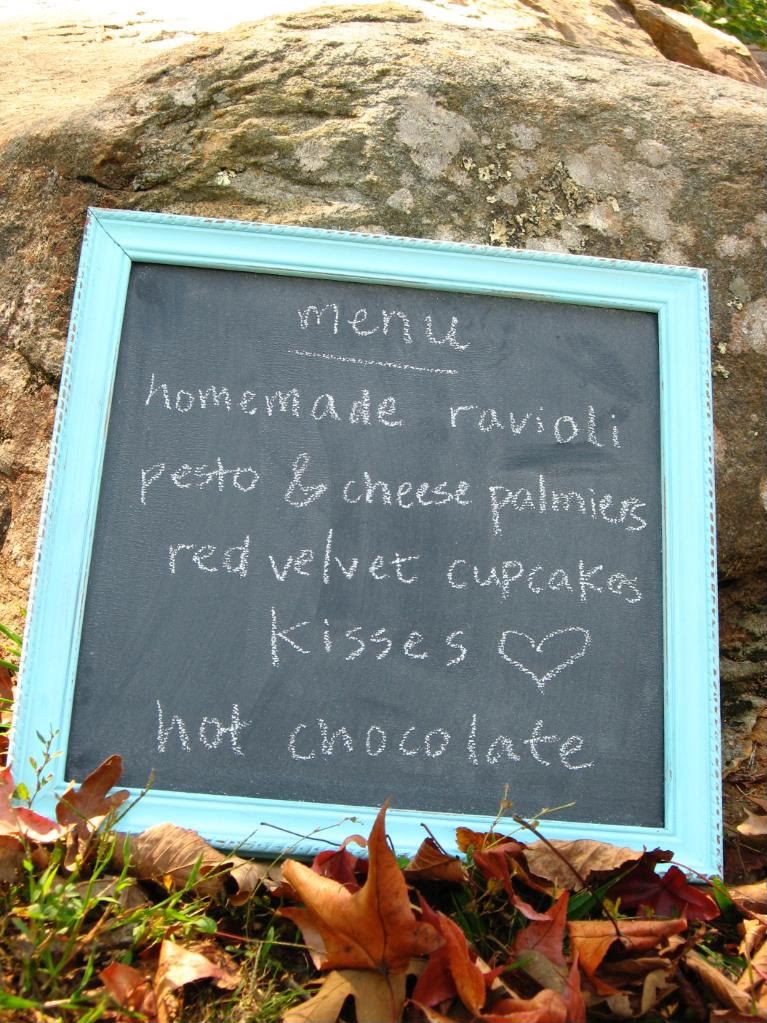 menu
homemade ravioli
pesto & cheese palmiers
red velvet cupcakes
kisses ♡
hot chocolate